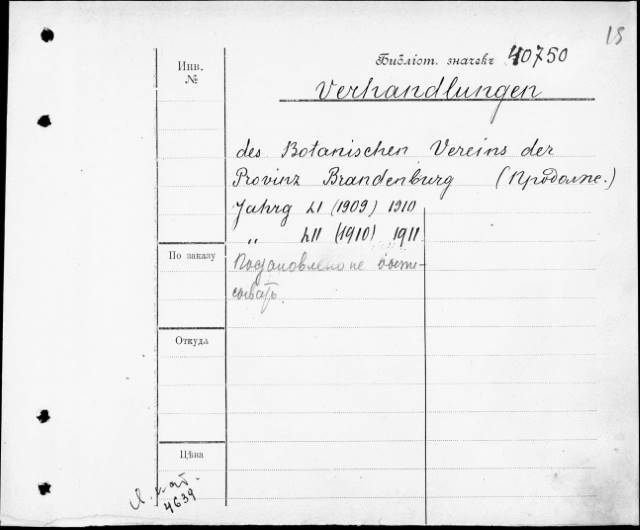 15
Библіот. значекъ 40750
Инв.
№
Verhandlungen
des Botanischen Vereins der
Provinz Brandenburg (Продолже.)
Jahrg LI (1909) 1910
„ LII (1910) 1911
По заказу
Постановлено не выпи-
сывать.
Откуда
Цѣна
4639